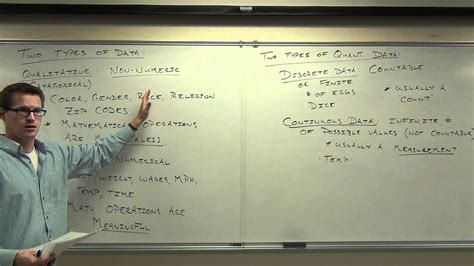 Two Types of Data:
Qualitative: Non-Numeric
(tagorical)
Color, Gender, Race, Religion
Zip Codes
* Mathematical Operations
Are
Numerical
Weight, Wages, MPH,
Temp, Time
Math Operations Are
Meaningful
Two Types of Quant. Data
Discrete Data: Countable
or Finite
# of Eggs
* Usually a
Count
Dice
Continuous Data: Infinite #
of Possible Values (Not Countable)
* Usually a
Measurement
Temp